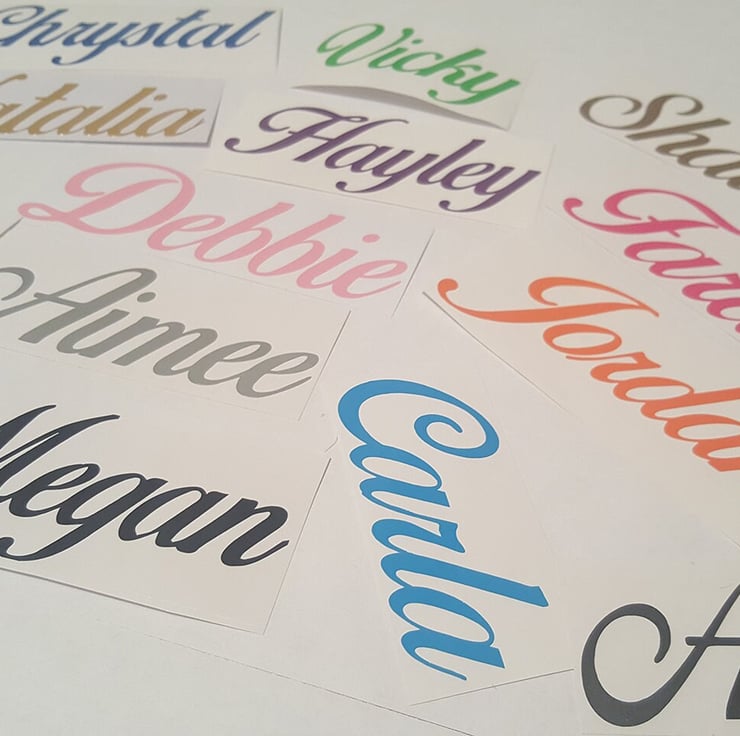 Chrystal
Vicky
Natalia
Hayley
Debbie
Aimee
Jordan
Megan
Carla